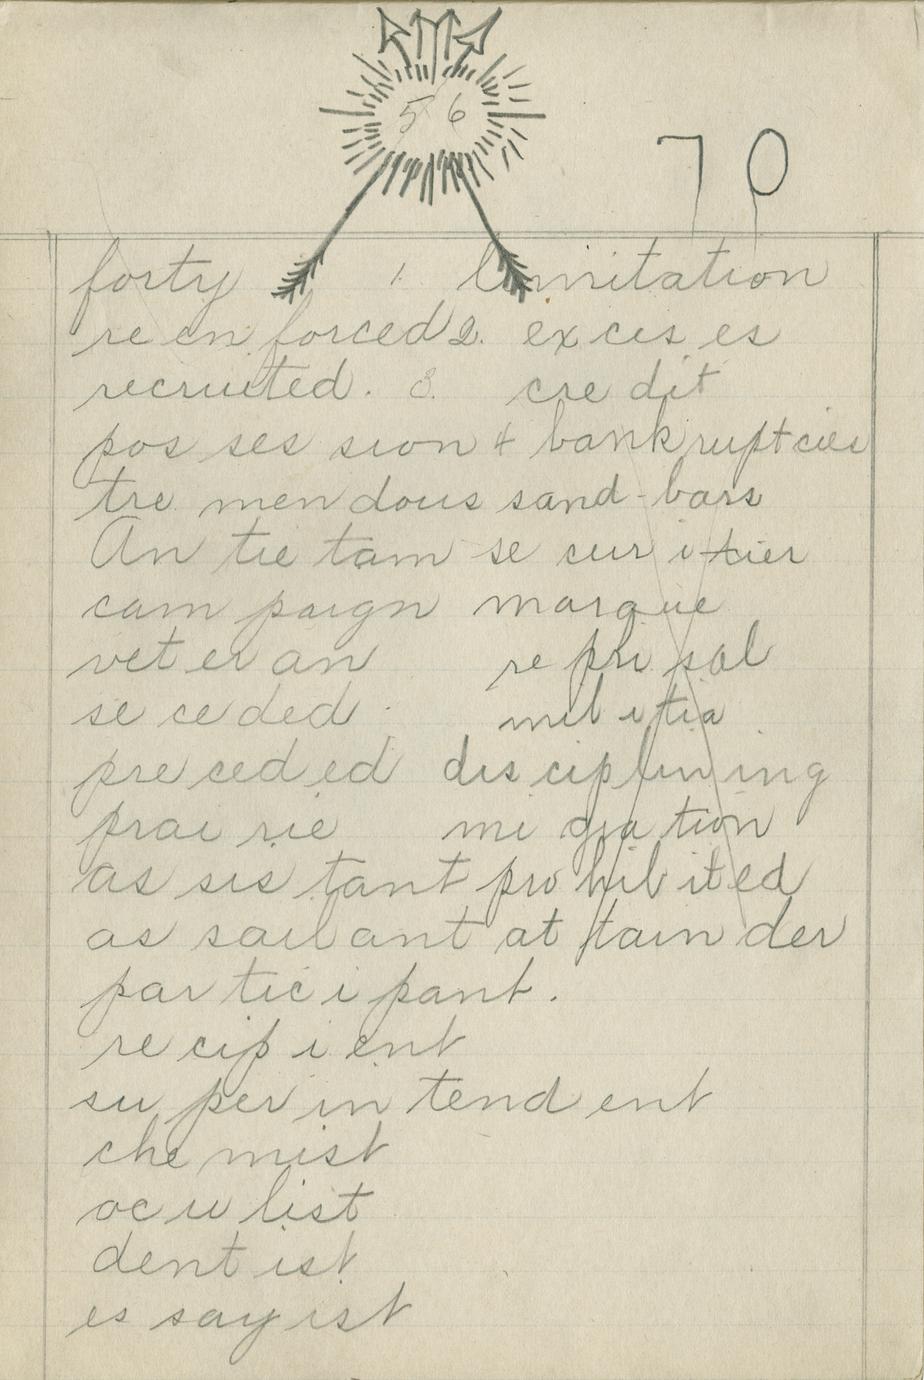 56
70
forty 1. limitation
re en forced 2. ex cis es
recruited. 3. cre dit
pos ses sion 4 bankruptcies
tre men dous sand-bars
An tie tam se cur i tier
cam paign marque
vet er an re pri sal
se ce ded mil i tia
pre ced ed dis ciplin ing
prai rie mi gra tion
as sis tant pro hib it ed
as sail ant at tain der
par tic i pant.
re cip i ent
su per in tend ent
che mist
oc u list
dent ist
es say ist